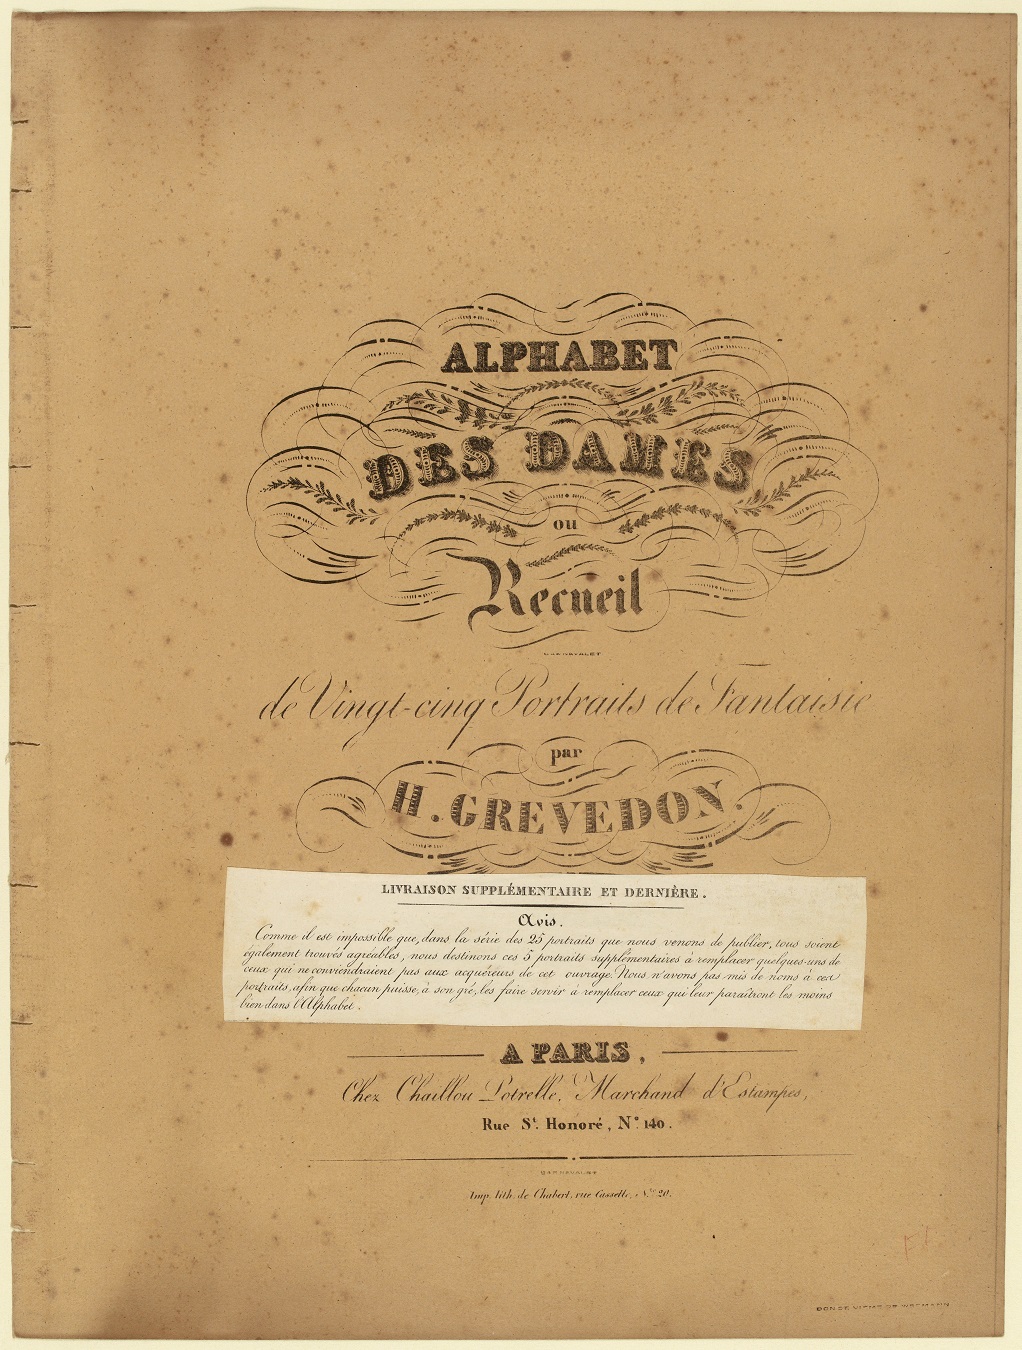 ALPHABET
DES DAMES
ou
Recueil
CARNAVALET
de Vingt-cinq Portraits de Fantaisie
par
H. GREVEDON.
LIVRAISON SUPPLÉMENTAIRE ET DERNIÈRE.
Avis.
Comme il est impossible que, dans la série des 25 portraits que nous venons de publier, tous soient
également trouvés agréables, nous destinons ces 5 portraits supplémentaires à remplacer quelques-uns de
ceux qui ne conviendraient pas aux acquéreurs de cet ouvrage. Nous n'avons pas mis de noms à ces
portraits, afin que chacun puisse, à son gré, les faire servir à remplacer ceux qui leur paraîtront les moins
bien dans l'Alphabet.
A PARIS,
Chez Chaillou Potrelle, Marchand d'Estampes,
Rue St. Honoré, N° 140.
CARNAVALET
Imp. lith. de Chabert, rue Cassette, N° 20.